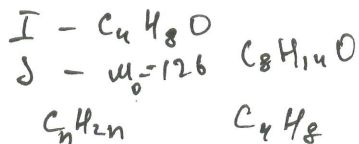 I - C₄H₈O
J - M₀=126 C₈H₁₄O
CₙH₂ₙ C₄H₈